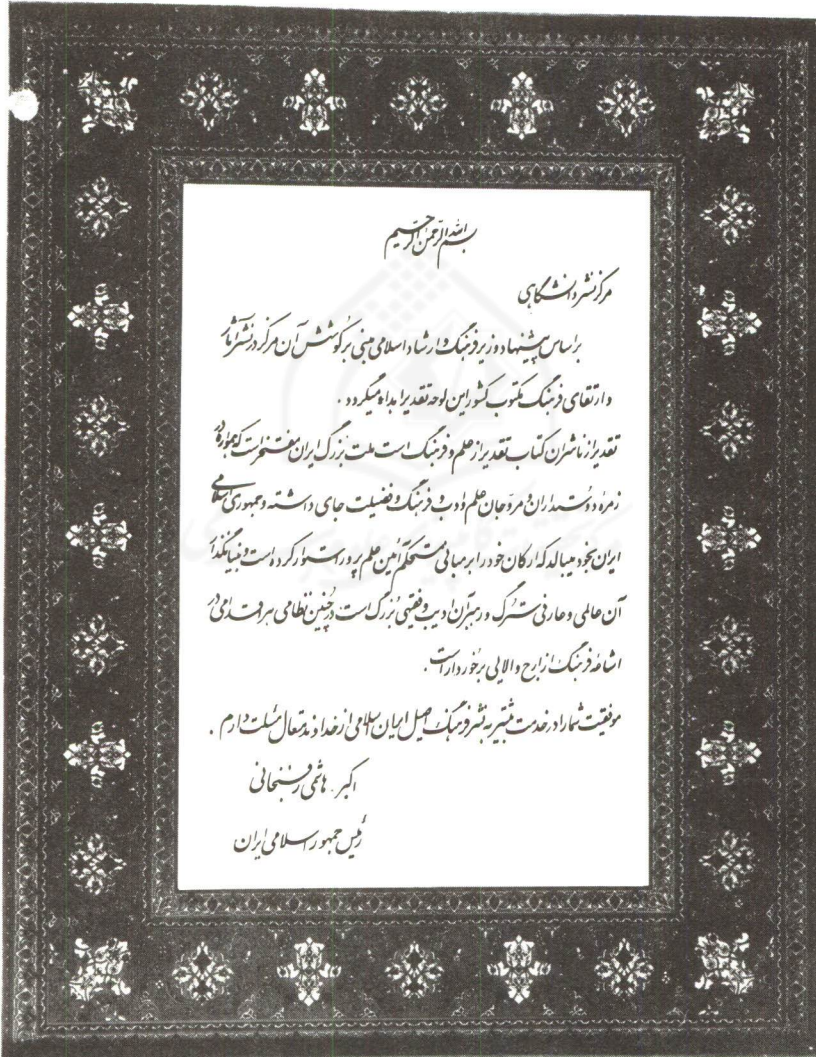 بسم الله الرحمن الرحیم
مرکز نشر دانشگاهی
براساس پیشنهاد وزیر فرهنگ و ارشاد اسلامی مبنی بر کوشش آن مرکز در نشر آثار
و ارتقای فرهنگ مکتوب کشور این لوحه تقدیر اهداء میگردد.
تقدیر از ناشران کتاب تقدیر از علم و فرهنگ است ملت بزرگ ایران مفتخر است که همواره در
زمره دوستداران و مروجان علم و ادب و فرهنگ و فضیلت جای داشته و جمهوری اسلامی
ایران بخود میبالد که ارکان خود را بر مبانی مستحکم آئین علم پرور استوار کرده است و بنیانگذار
آن عالمی و عارفی سترگ و رهبر آن ادیب و فقیهی بزرگ است در چنین نظامی هر اقدامی در
اشاعه فرهنگ از ارج والایی برخوردار است.
موفقیت شما را در خدمت بیشتر به نشر فرهنگ اصیل ایران اسلامی از خداوند متعال مسئلت دارم.
اکبر هاشمی رفسنجانی
رئیس جمهور اسلامی ایران